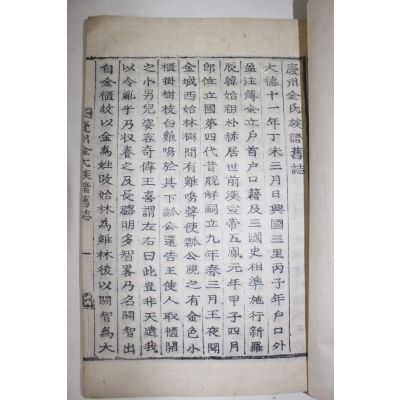 慶州金氏族譜舊誌
大德十一年丁未三月日興國三里丙子年戶口外
盈注簿金立戶首戶口籍及三國史相準施行新羅
辰韓始祖朴赫居世前漢宣帝五鳳元年甲子四月
卽位立國第四代昔脫解嗣立九年春三月王夜聞
金城西始林樹間有雞鳴聲使瓠公覘之有金色小
櫃掛樹枝白雞鳴於其下瓠公還告王使人取櫃開
之小男兒姿容奇偉王喜謂左右曰此豈非天遺我
以令胤乎乃收養之及長聰明多智畧乃名閼智出
自金櫃故以金爲姓改始林爲雞林後以閼智爲大
慶州金氏族譜舊誌 一